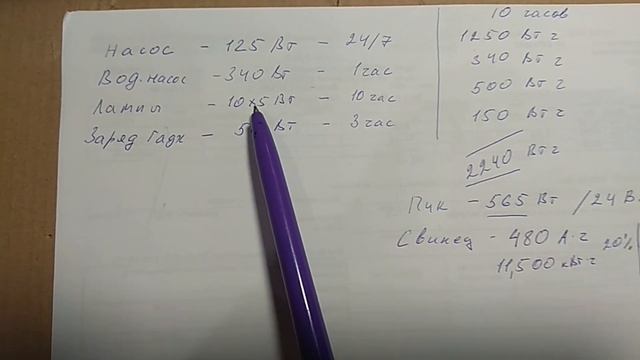 Насос - 125 Вт - 24/7
Вод.насос - 340 Вт - 1 час
Лампы - 10 х 5 Вт - 10 час
Заряд Гадж - Вт - 3 час
10 часов
1250 Вт г
340 Вт г
500 Вт г
150 Вт г
2240 Вт г
Пик - 565 Вт / 24 В.
Свинец - 480 А·г 20%
11,500 кВт·г